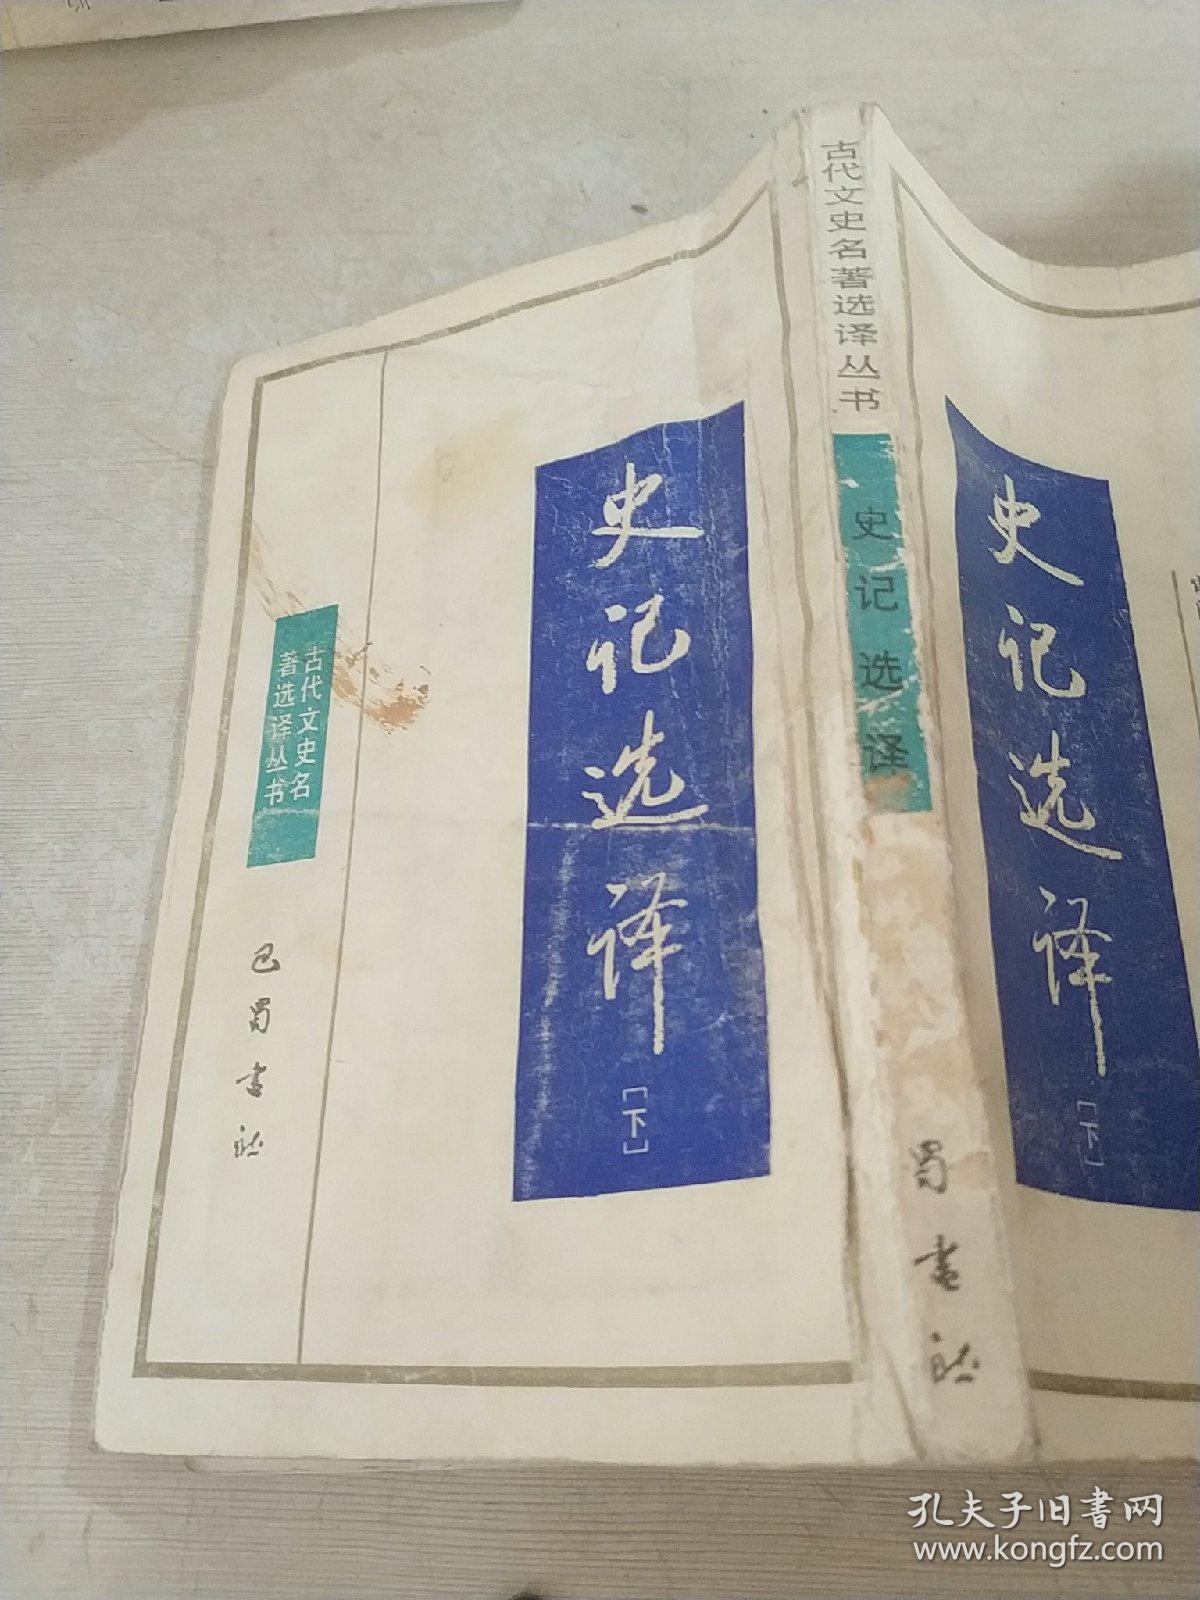 史记选译
[下]
古代文史名
著选译丛书
巴蜀书社
古代文史名著选译丛书
史记选译
蜀书社
史记选译
[下]
孔夫子旧书网
www.kongfz.com